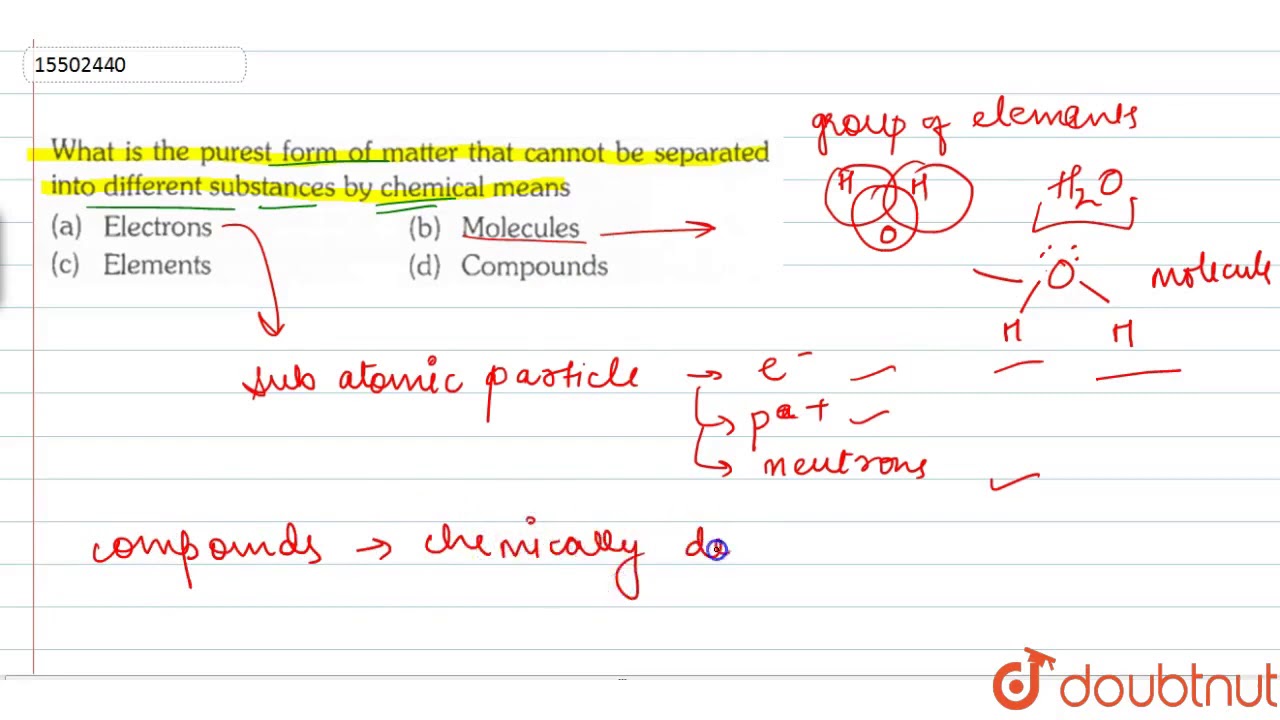 15502440
What is the purest form of matter that cannot be separated
into different substances by chemical means
(a) Electrons (b) Molecules
(c) Elements (d) Compounds
group of elements
H H
O
H₂O
O
H H
molecule
sub atomic particle → e⁻
→ p +
→ neutrons
compounds → chemically
doubtnut